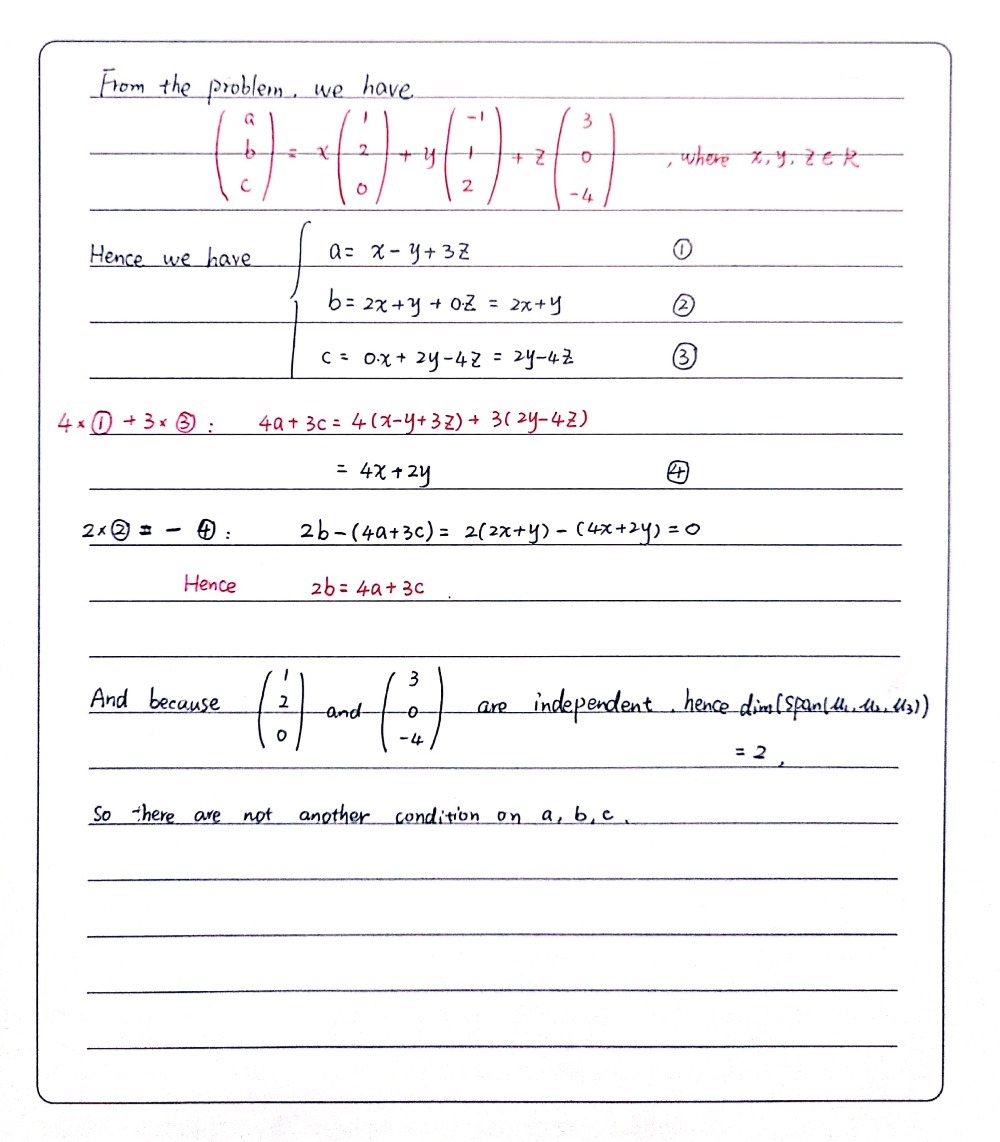 From the problem, we have
(a b c) = x (1 2 0) + y (-1 1 2) + z (3 0 -4) , where x, y, z ∈ R
Hence we have { a = x - y + 3z ①
b = 2x + y + 0·z = 2x + y ②
c = 0·x + 2y - 4z = 2y - 4z ③
4 × ① + 3 × ③ : 4a + 3c = 4(x-y+3z) + 3(2y-4z)
= 4x + 2y ④
2×② = - ④ : 2b - (4a+3c) = 2(2x+y) - (4x+2y) = 0
Hence 2b = 4a + 3c .
And because (1 2 0) and (3 0 -4) are independent, hence dim(span(u₁, u₂, u₃))
= 2,
So there are not another condition on a, b, c.